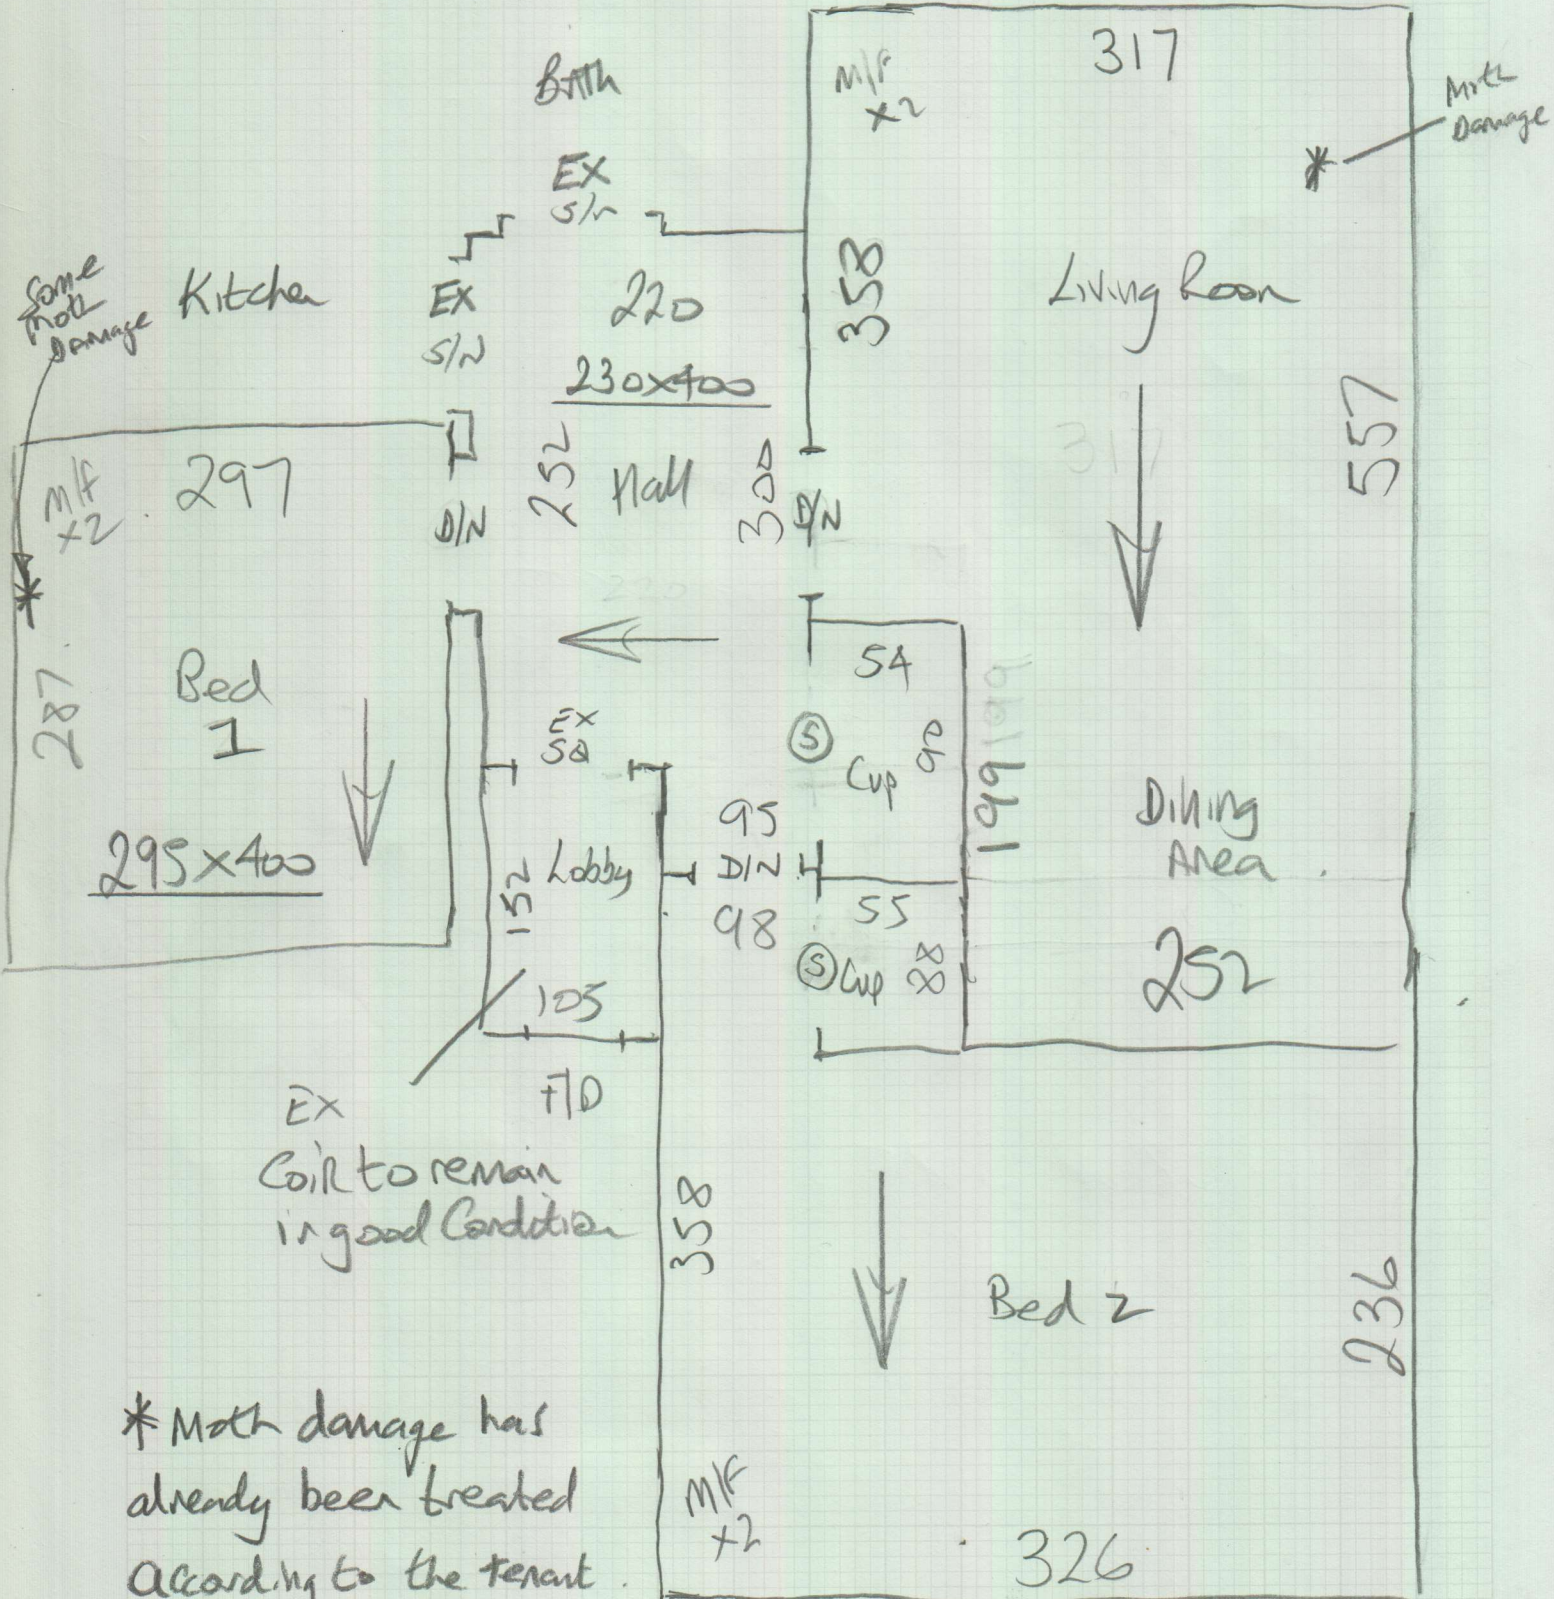 317
M/F
x2
Bath
Moth
Damage
EX
S/N
Some
Moth
Damage
Kitchen
EX
S/N
220
230x400
353
Living Room
557
297
M/F
x2
D/N
252
Hall
300
D/N
317
220
54
287
Bed
1
EX
SQ
S
Cup
90
199
199
95
D/N
98
Dining
Area
295x400
152
Lobby
55
S
Cup
88
252
105
F/D
EX
Coir to remain
in good Condition
358
Bed 2
236
* Moth damage has
already been treated
According to the tenant.
M/F
x2
326